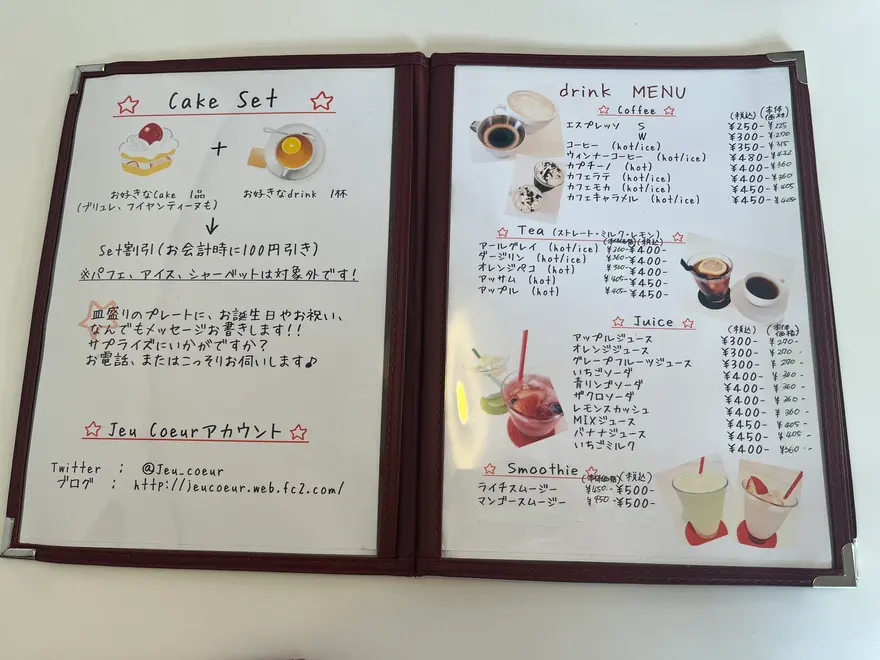 Cake Set
+
お好きなCake 1品
お好きなdrink 1杯
(ブリュレ、フイヤンティーヌも)
↓
Set割引(お会計時に100円引き)
※パフェ、アイス、シャーベットは対象外です!
皿盛りのプレートに、お誕生日やお祝い、
なんでもメッセージお書きします!!
サプライズにいかがですか?
お電話、またはこっそりお伺いします♪
Jeu Coeurアカウント
Twitter : @Jeu_coeur
ブログ : http://jeucoeur.web.fc2.com/
drink MENU
Coffee (税込) (本体価格)
エスプレッソ S ¥250- ¥225
W ¥300- ¥270
コーヒー (hot/ice) ¥350- ¥315
ウィンナーコーヒー (hot/ice) ¥480- ¥432
カプチーノ (hot) ¥400- ¥360
カフェラテ (hot/ice) ¥400- ¥360
カフェモカ (hot/ice) ¥450- ¥405
カフェキャラメル (hot/ice) ¥450- ¥405
Tea (ストレート・ミルク・レモン)
(本体価格) (税込)
アールグレイ (hot/ice) ¥360- ¥400-
ダージリン (hot/ice) ¥360- ¥400-
オレンジペコ (hot) ¥400-
アッサム (hot) ¥405- ¥450-
アップル (hot) ¥405- ¥450-
Juice (税込) (本体価格)
アップルジュース ¥300- ¥270-
オレンジジュース ¥300- ¥270-
グレープフルーツジュース ¥300- ¥270-
いちごソーダ ¥400- ¥360-
青リンゴソーダ ¥400- ¥360-
ザクロソーダ ¥400- ¥360-
レモンスカッシュ ¥400- ¥360-
MIXジュース ¥450- ¥405-
バナナジュース ¥450- ¥405-
いちごミルク ¥400- ¥360-
Smoothie (本体価格) (税込)
ライチスムージー ¥450- ¥500-
マンゴースムージー ¥450- ¥500-